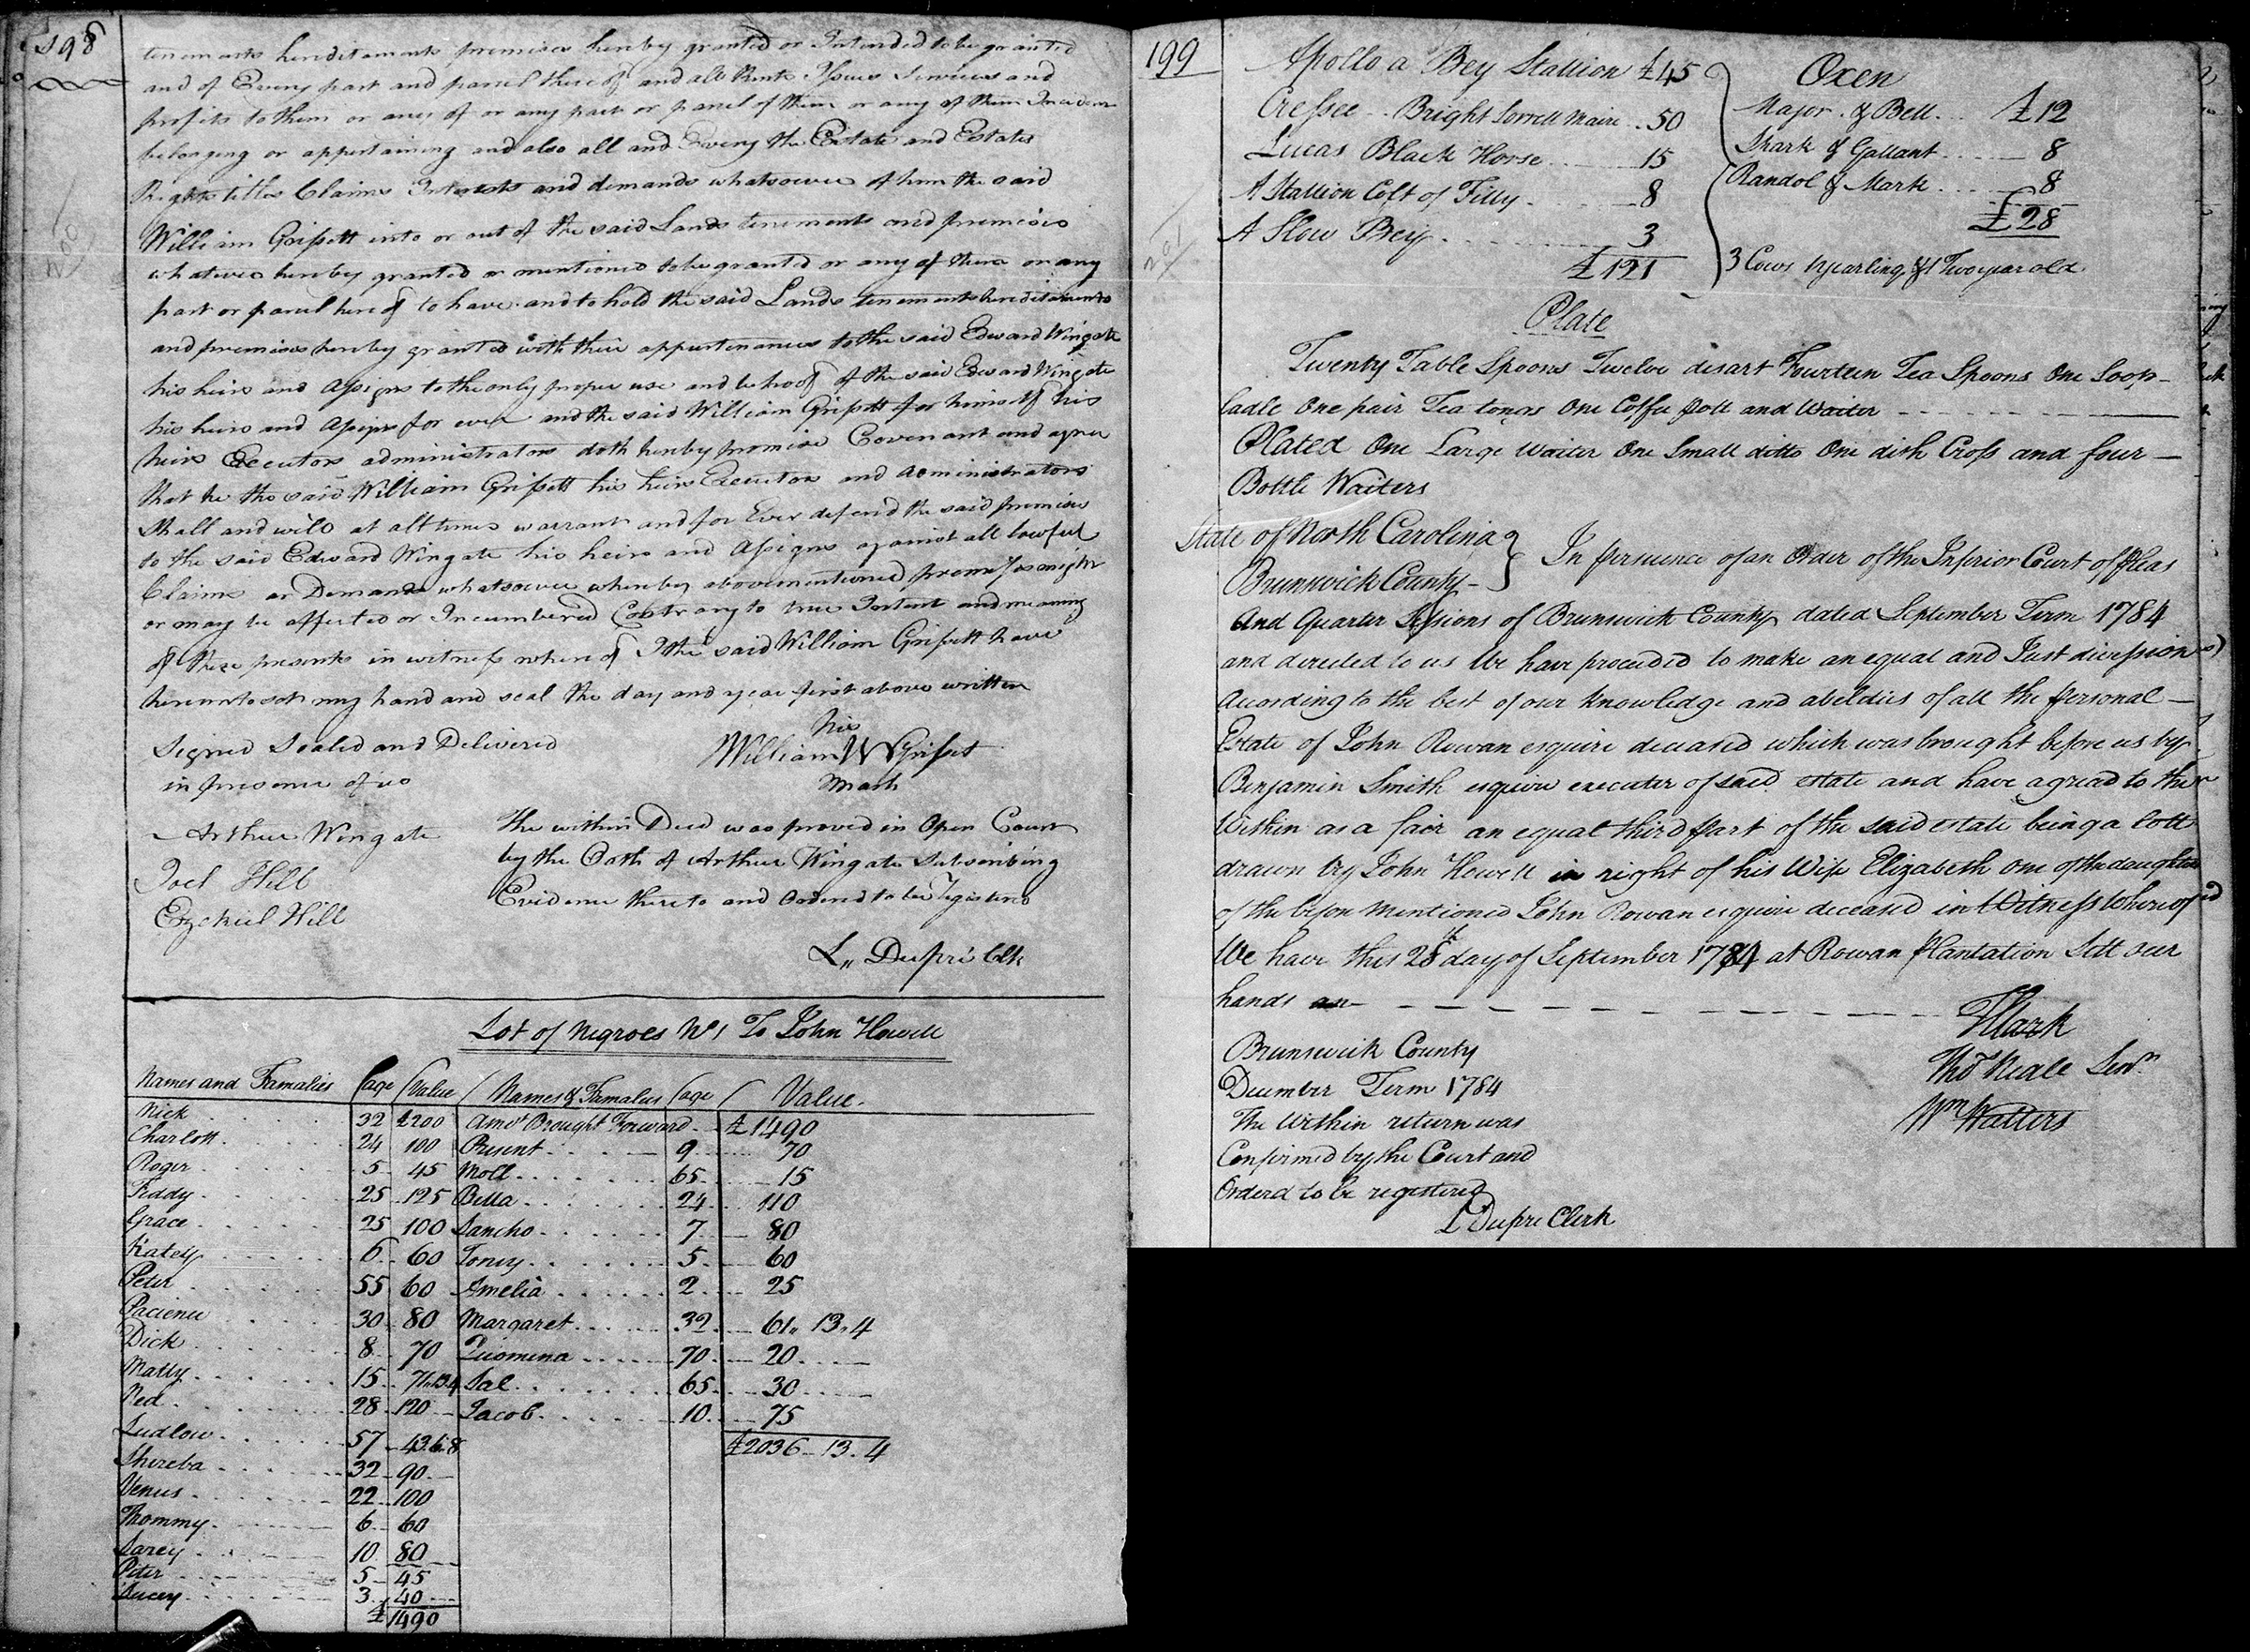 198
tenements hereditaments premises hereby granted or Intended to be granted
and of Every part and parcel thereof and all Rents Issues Services and
profits to them or any of or any part or parcel of them or any of them
belonging or appertaining and also all and Every the Estate and Estates
Rights titles Claims Interests and demands whatsoever of him the said
William Grissett into or out of the said Lands tenements and premises
whatever hereby granted or mentioned to be granted or any of them or any
part or parcel here of to have and to hold the said Lands tenements hereditaments
and premises hereby granted with their appurtenances to the said Edward Wingate
his heirs and Assigns to the only proper use and behoof of the said Edward Wingate
his heirs and Assigns for ever and the said William Grissett for himself his
heirs Executors administrators doth hereby promise Covenant and agree
that he the said William Grissett his heirs Executors and administrators
Shall and will at all times warrant and for Ever defend the said premises
to the said Edward Wingate his heirs and Assigns against all lawful
Claims or Demands whatsoever whereby abovementioned premises might
or may be affected or Incumbered Contrary to true Intent and meaning
of these presents in witness where of I the said William Grissett have
hereunto set my hand and seal the day and year first above written
Signed Sealed and Delivered
in presence of us
his
William W Grisset
Mark
Arthur Wingate
Joel Hill
Ezekiel Hill
The within Deed was proved in Open Court
by the Oath of Arthur Wingate Subscribing
Evidence thereto and Ordered to be Registered
L,, Dupré Clk
Lot of Negroes No 1 To John Howell
Names and Famalies age Value Names & Famalies age Value
Nick 32 £200 Amot Brought Forward £1490
Charlott 24 100 Present 9 70
Roger 5 45 Moll 65 15
Tiddy 25 125 Bella 24 110
Grace 25 100 Sancho 7 80
Katey 6 60 Toney 5 60
Peter 55 60 Amelia 2 25
Pacience 30 80 Margaret 32 61,, 13,, 4
Dick 8 70 70 20
Matty 15 71.13.4 Sal 65 30
Ned 28 120 Jacob 10 75
Ludlow 57 43.6.8 £2036 - 13 - 4
Shereba 32 90
Venus 22 100
Thommy 6 60
Sarey 10 80
Peter 5 45
Lucey 3 40
£1490
200
199
201
Apollo a Bey Stallion £45
Cressee Bright Sorrell Maire 50
Lucas Black Horse 15
A Stallion Colt of Filly 8
A Slow Bey 3
£121
Oxen
Major & Bell £12
Shark & Gallant 8
Randol & Mark 8
£28
3 Cows 1 yearling & 1 Two year old
Plate
Twenty Table Spoons Twelve disart Fourteen Tea Spoons One Soop
ladle One pair Tea tongs One Coffee Pott and Waiter
Plated One Large Waiter One Small ditto One dish Cross and four
Bottle Waiters
State of North Carolina
Brunswick County
In persuence of an Order of the Inferior Court of Pleas
And Quarter Sessions of Brunswick County dated September Term 1784
and directed to us We have proceeded to make an equal and Just
According to the best of our knowledge and abeldies of all the personal
Estate of John Rowan esquire deceased which was brought before us by
Benjamin Smith esquire executer of said estate and have agread to the
Within as a fair an equal third part of the said estate being a lott
drawn by John Howell in right of his Wife Elizabeth one of the daughters
of the before mentioned John Rowan esquire deceased in Witness Whereof
We have this 28th day of September 1784 at Rowan Plantation Sett our
hands an
Thos Neale Senr
Wm Watters
Brunswick County
December Term 1784
The Within return was
Confirmed by the Court and
Orderd to be registered
L Dupre Clerk